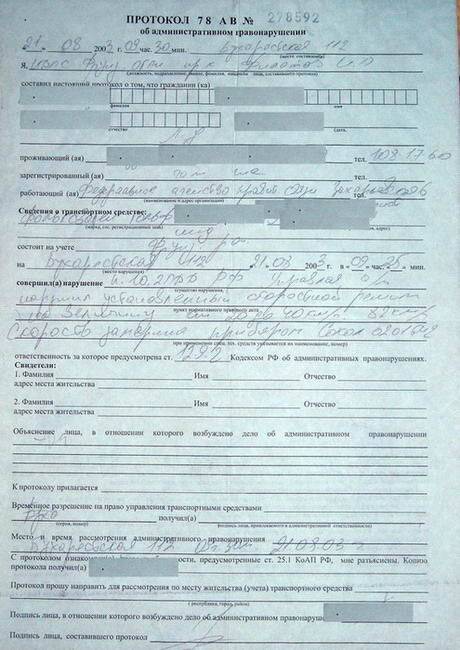 ПРОТОКОЛ 78 АВ № 278592
об административном правонарушении
21 - 08 2003 г. 09 час. 30 мин. Бухарестская 112
(место составления)
Я,
(должность, подразделение, звание, фамилия, инициалы лица, составившего протокол)
составил настоящий протокол о том, что гражданин (ка)
фамилия имя
отчество
проживающий (ая) тел. 108 17 60
зарегистрированный (ая) тел.
работающий (ая) Федеральное агенство
(наименование и адрес организации)
Сведения о транспортном средстве:
(марка, гос. регистрационный знак)
состоит на учете
на Бухарестская 112 21 - 08 2003 г. в 09 час. 25 мин.
(место нарушения)
совершил(а) нарушение п. 10.2 ПДД РФ Управляя а/м
нарушил установленный скоростной режим
(пункт нормативного правового акта)
на величину от 20 до 40 км/ч 82 км/ч
Скорость замерена прибором Сокол
(при применении спец. тех. средств указывается их наименование, номер)
ответственность за которое предусмотрена ст. 12.9.2 Кодексом РФ об административных правонарушениях.
Свидетели:
1. Фамилия Имя Отчество
адрес места жительства
2. Фамилия Имя Отчество
адрес места жительства
Объяснение лица, в отношении которого возбуждено дело об административном правонарушении
К протоколу прилагается
Временное разрешение на право управления транспортными средствами
получил(а)
(серия, номер) (подпись лица, привлекаемого к административной ответственности)
Место и время рассмотрения административного правонарушения
Бухарестская 112 21 08.03
С протоколом ознаком ости, предусмотренные ст. 25.1 КоАП РФ, мне разъяснены. Копию
протокола получил(а)
Протокол прошу направить для рассмотрения по месту жительства (учета) транспортного средства
(республика, город, район)
Подпись лица, в отношении которого возбуждено дело об административном правонарушении
Подпись лица, составившего протокол